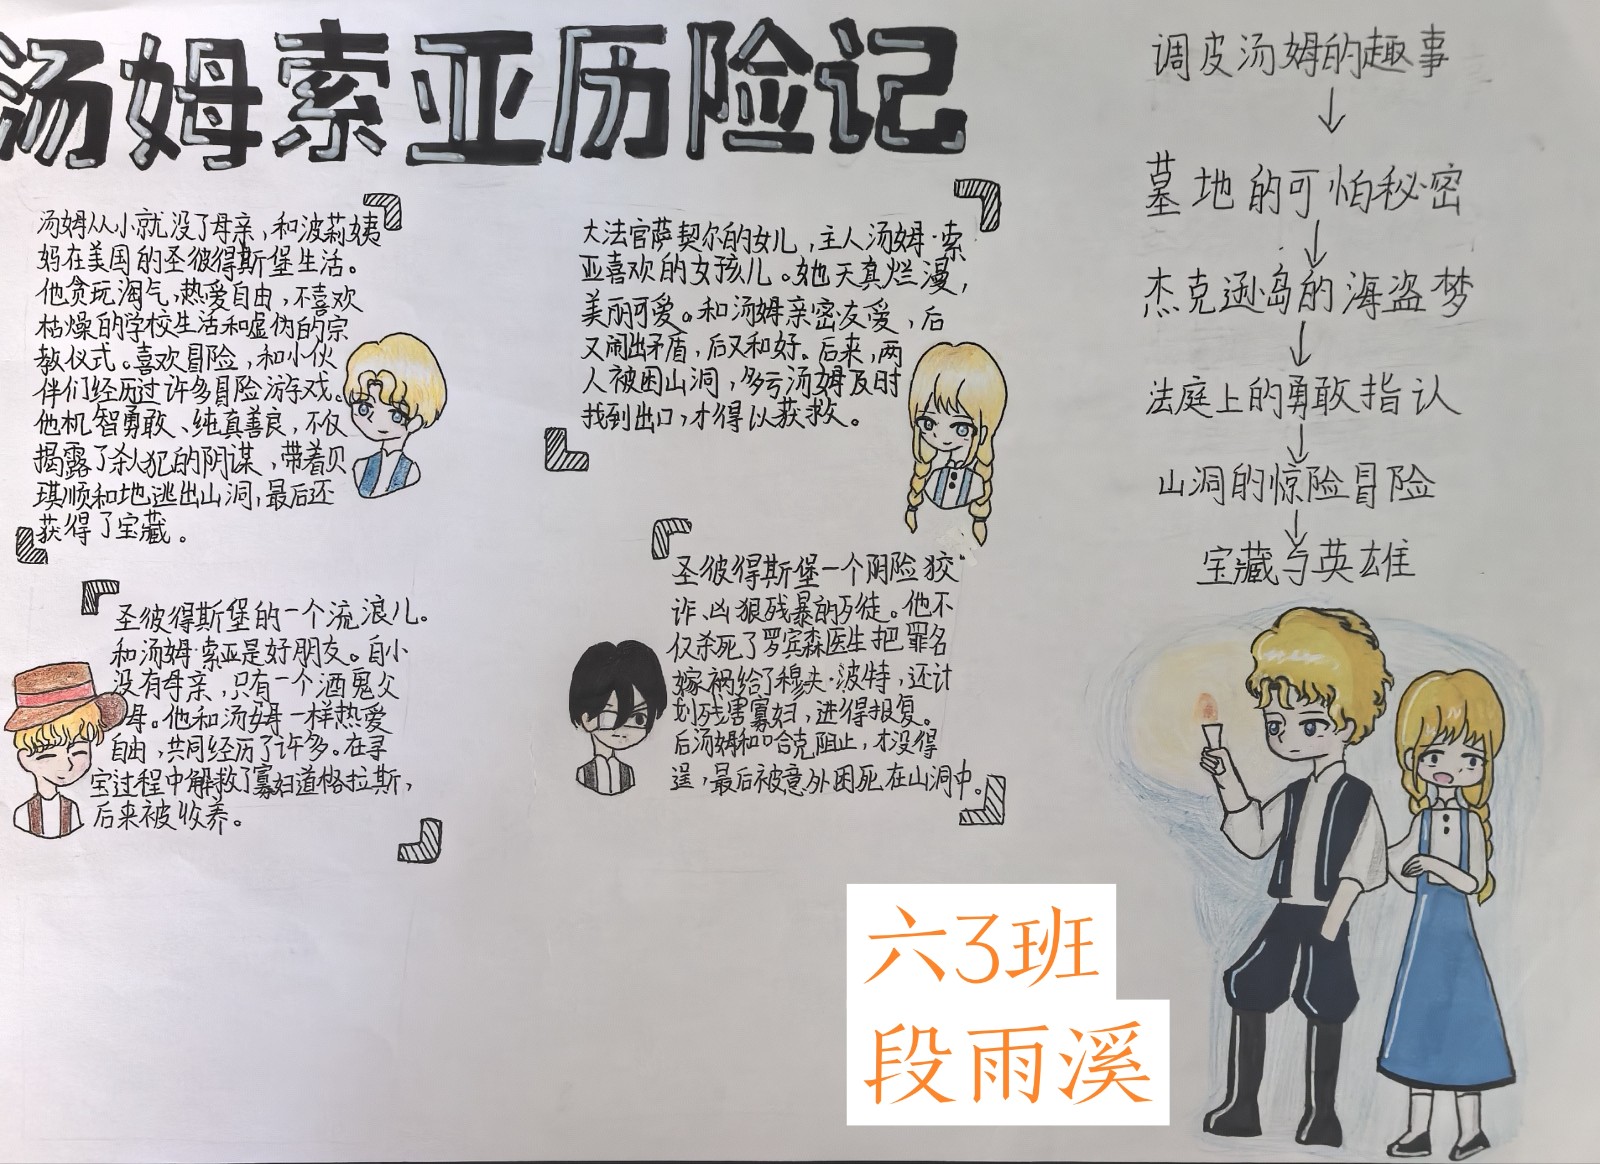 汤姆索亚历险记
汤姆从小就没了母亲，和波莉姨
妈在美国的圣彼得斯堡生活。
他贪玩淘气，热爱自由，不喜欢
枯燥的学校生活和虚伪的宗
教仪式。喜欢冒险，和小伙
伴们经历过许多冒险游戏。
他机智勇敢、纯真善良，不仅
揭露了杀人犯的阴谋，带着贝
琪顺和地逃出山洞，最后还
获得了宝藏。
圣彼得斯堡的一个流浪儿。
和汤姆·索亚是好朋友。自小
没有母亲，只有一个酒鬼父
母。他和汤姆一样热爱
自由，共同经历了许多。在寻
宝过程中解救了寡妇道格拉斯，
后来被收养。
大法官萨契尔的女儿，主人汤姆·索
亚喜欢的女孩儿。她天真烂漫，
美丽可爱。和汤姆亲密友爱，后
又闹出矛盾，后又和好。后来，两
人被困山洞，多亏汤姆及时
找到出口，才得以获救。
圣彼得斯堡一个阴险狡
诈、凶狠残暴的歹徒。他不
仅杀死了罗宾森医生把罪名
嫁祸给了穆夫·波特，还计
划残害寡妇，进得报复。
后汤姆和哈克阻止，才没得
逞，最后被意外困死在山洞中。
调皮汤姆的趣事
↓
墓地的可怕秘密
↓
杰克逊岛的海盗梦
↓
法庭上的勇敢指认
↓
山洞的惊险冒险
↓
宝藏与英雄
六3班
段雨溪